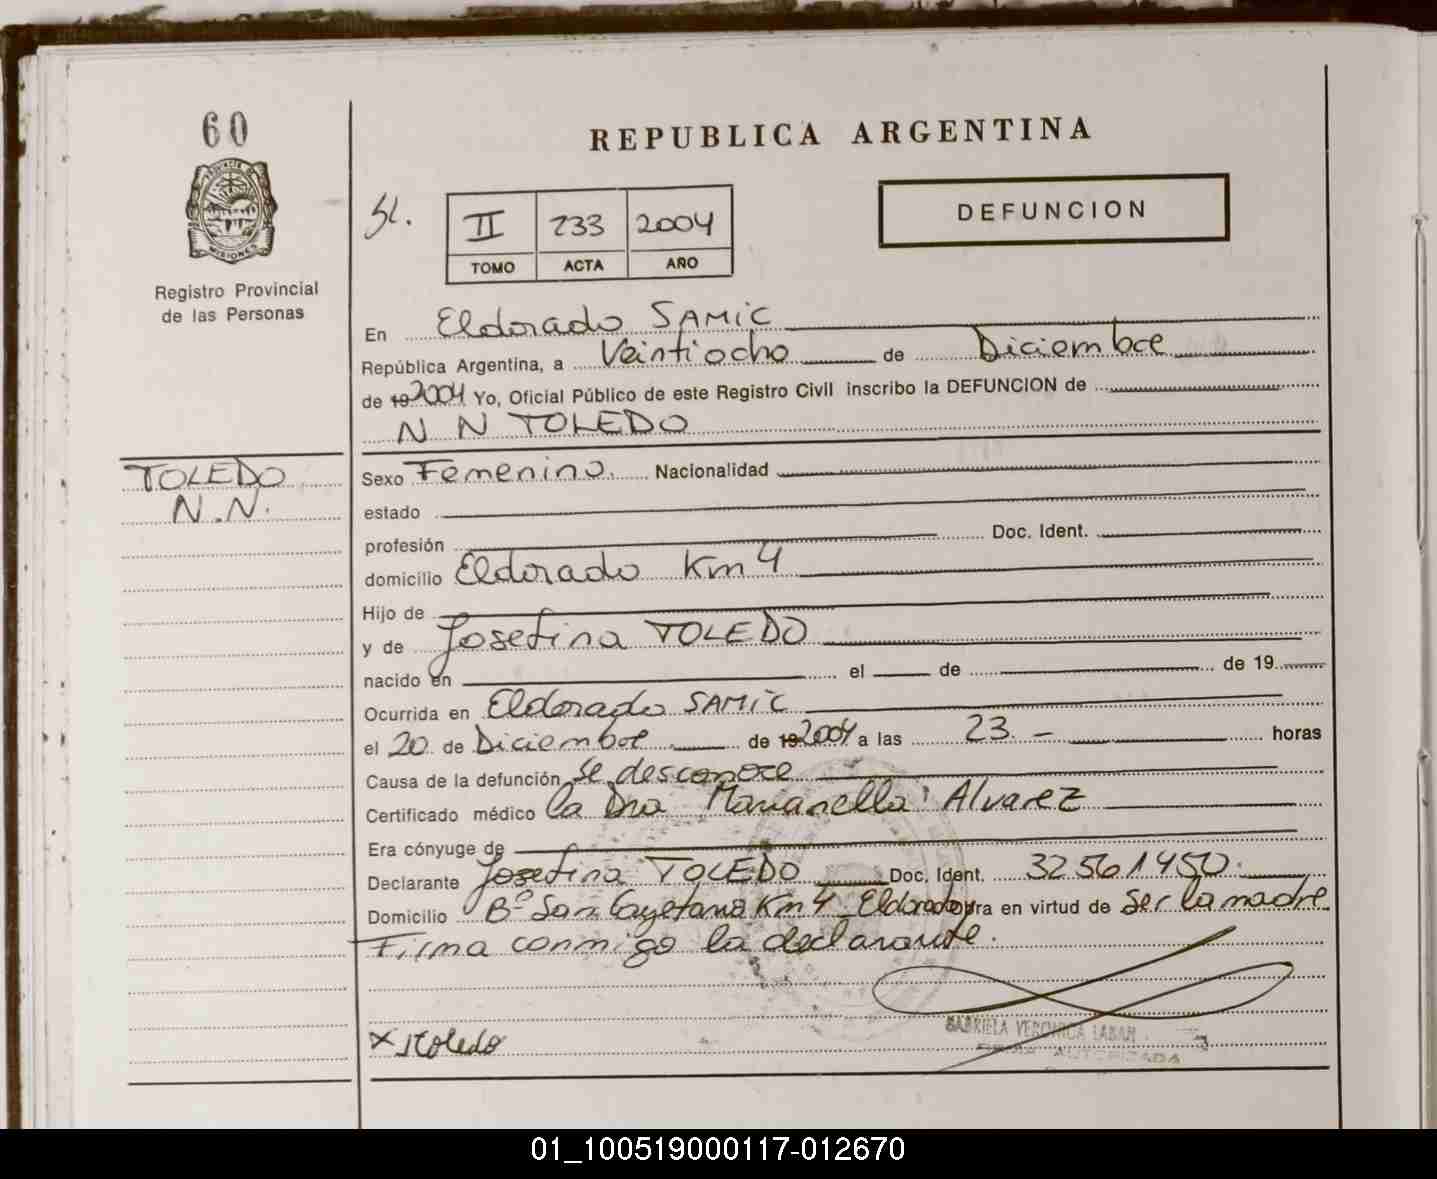 60
REPUBLICA ARGENTINA
PROVINCIA DE
MISIONES
Registro Provincial
de las Personas
II 233 2004
TOMO ACTA AÑO
DEFUNCION
En Eldorado SAMIC
República Argentina, a Veintiocho de Diciembre
de 19 2004 Yo, Oficial Público de este Registro Civil inscribo la DEFUNCION de
N N TOLEDO
TOLEDO
N.N.
Sexo Femenino. Nacionalidad
estado
profesión Doc. Ident.
domicilio Eldorado Km 4
Hijo de
y de Josefina TOLEDO
nacido en el de de 19
Ocurrida en Eldorado SAMIC
el 20 de Diciembre de 19 2004 a las 23. - horas
Causa de la defunción Se desconoce
Certificado médico la Dra Marianella Alvarez
Era cónyuge de
Declarante Josefina TOLEDO Doc. Ident. 32561450.
Domicilio Bº San Cayetano Km 4 Eldorado obra en virtud de ser la madre
Firma conmigo la declarante.
x JToledo
GABRIELA VERONICA LABAN
FIRMA AUTORIZADA
01_100519000117-012670